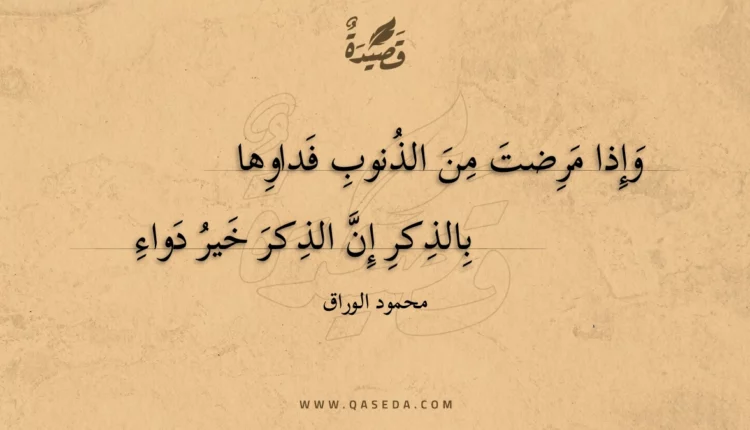 قَصِيدَةٌ
وَإِذا مَرِضتَ مِنَ الذُنوبِ فَداوِها
بِالذِكرِ إِنَّ الذِكرَ خَيرُ دَواءِ
محمود الوراق
WWW.QASEDA.COM